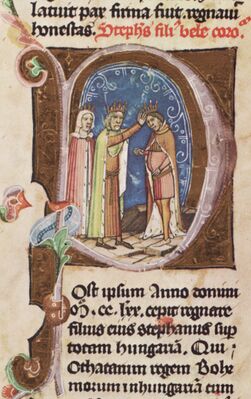 latuit par firma fuit. regnavit
honestas. Stephs fili9 bele coro.
Ost ipsum Anno domini
m̊. cc. lxx. cepit regnare
filius eius stephanus sup
totam hungariā. Qui
Othacarum regem Bohe
morum in hungariā cum